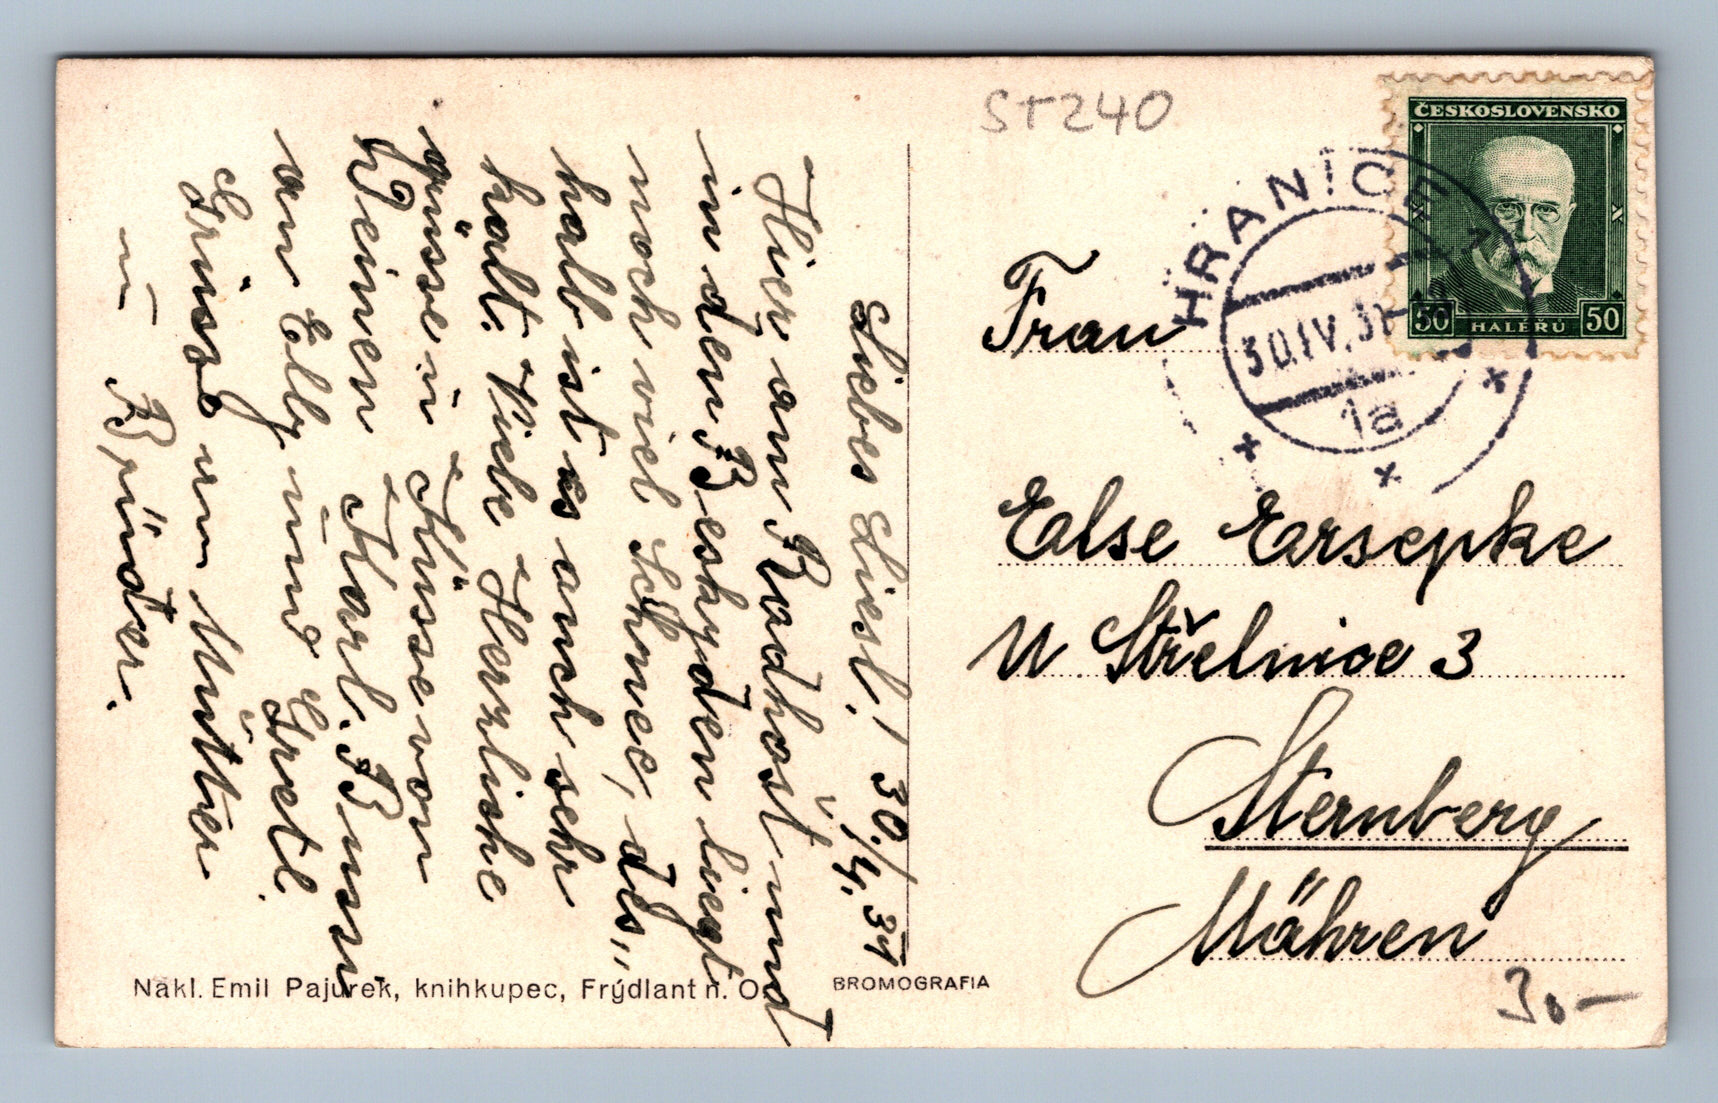 ST240
ČESKOSLOVENSKO
50 HALÉŘŮ 50
HRANICE
30.IV.31
1a
Frau
Else Ersepke
U. Střelnice 3
Sternberg
Mähren
30-
Liebes Liesl! 30./4. 31
Hier am Radhost und
in den Beskyden liegt
noch viel Schnee, des„
halb ist es auch sehr
kalt. Viele Herzliche
Grüsse u Küsse von
Deinem Karl. Bussi
an Elly und Gretl.
Grüsse von Mutter
u Brüder.
Nakl. Emil Pajurek, knihkupec, Frýdlant n. O.
BROMOGRAFIA